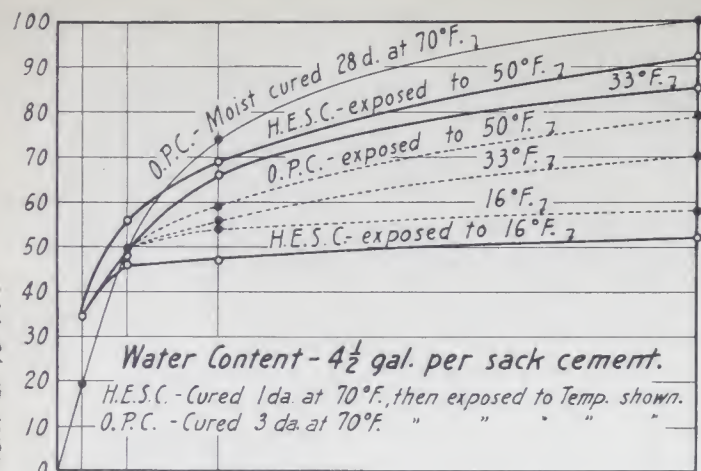 100
90
80
70
60
50
40
30
20
10
0
O.P.C. - Moist cured 28 d. at 70°F.
H.E.S.C. - exposed to 50°F.
33°F.
O.P.C. - exposed to 50°F.
33°F.
16°F.
H.E.S.C. - exposed to 16°F.
Water Content - 4½ gal. per sack cement.
H.E.S.C. - Cured 1 da. at 70°F., then exposed to Temp. shown.
O.P.C. - Cured 3 da. at 70°F. " " " " "